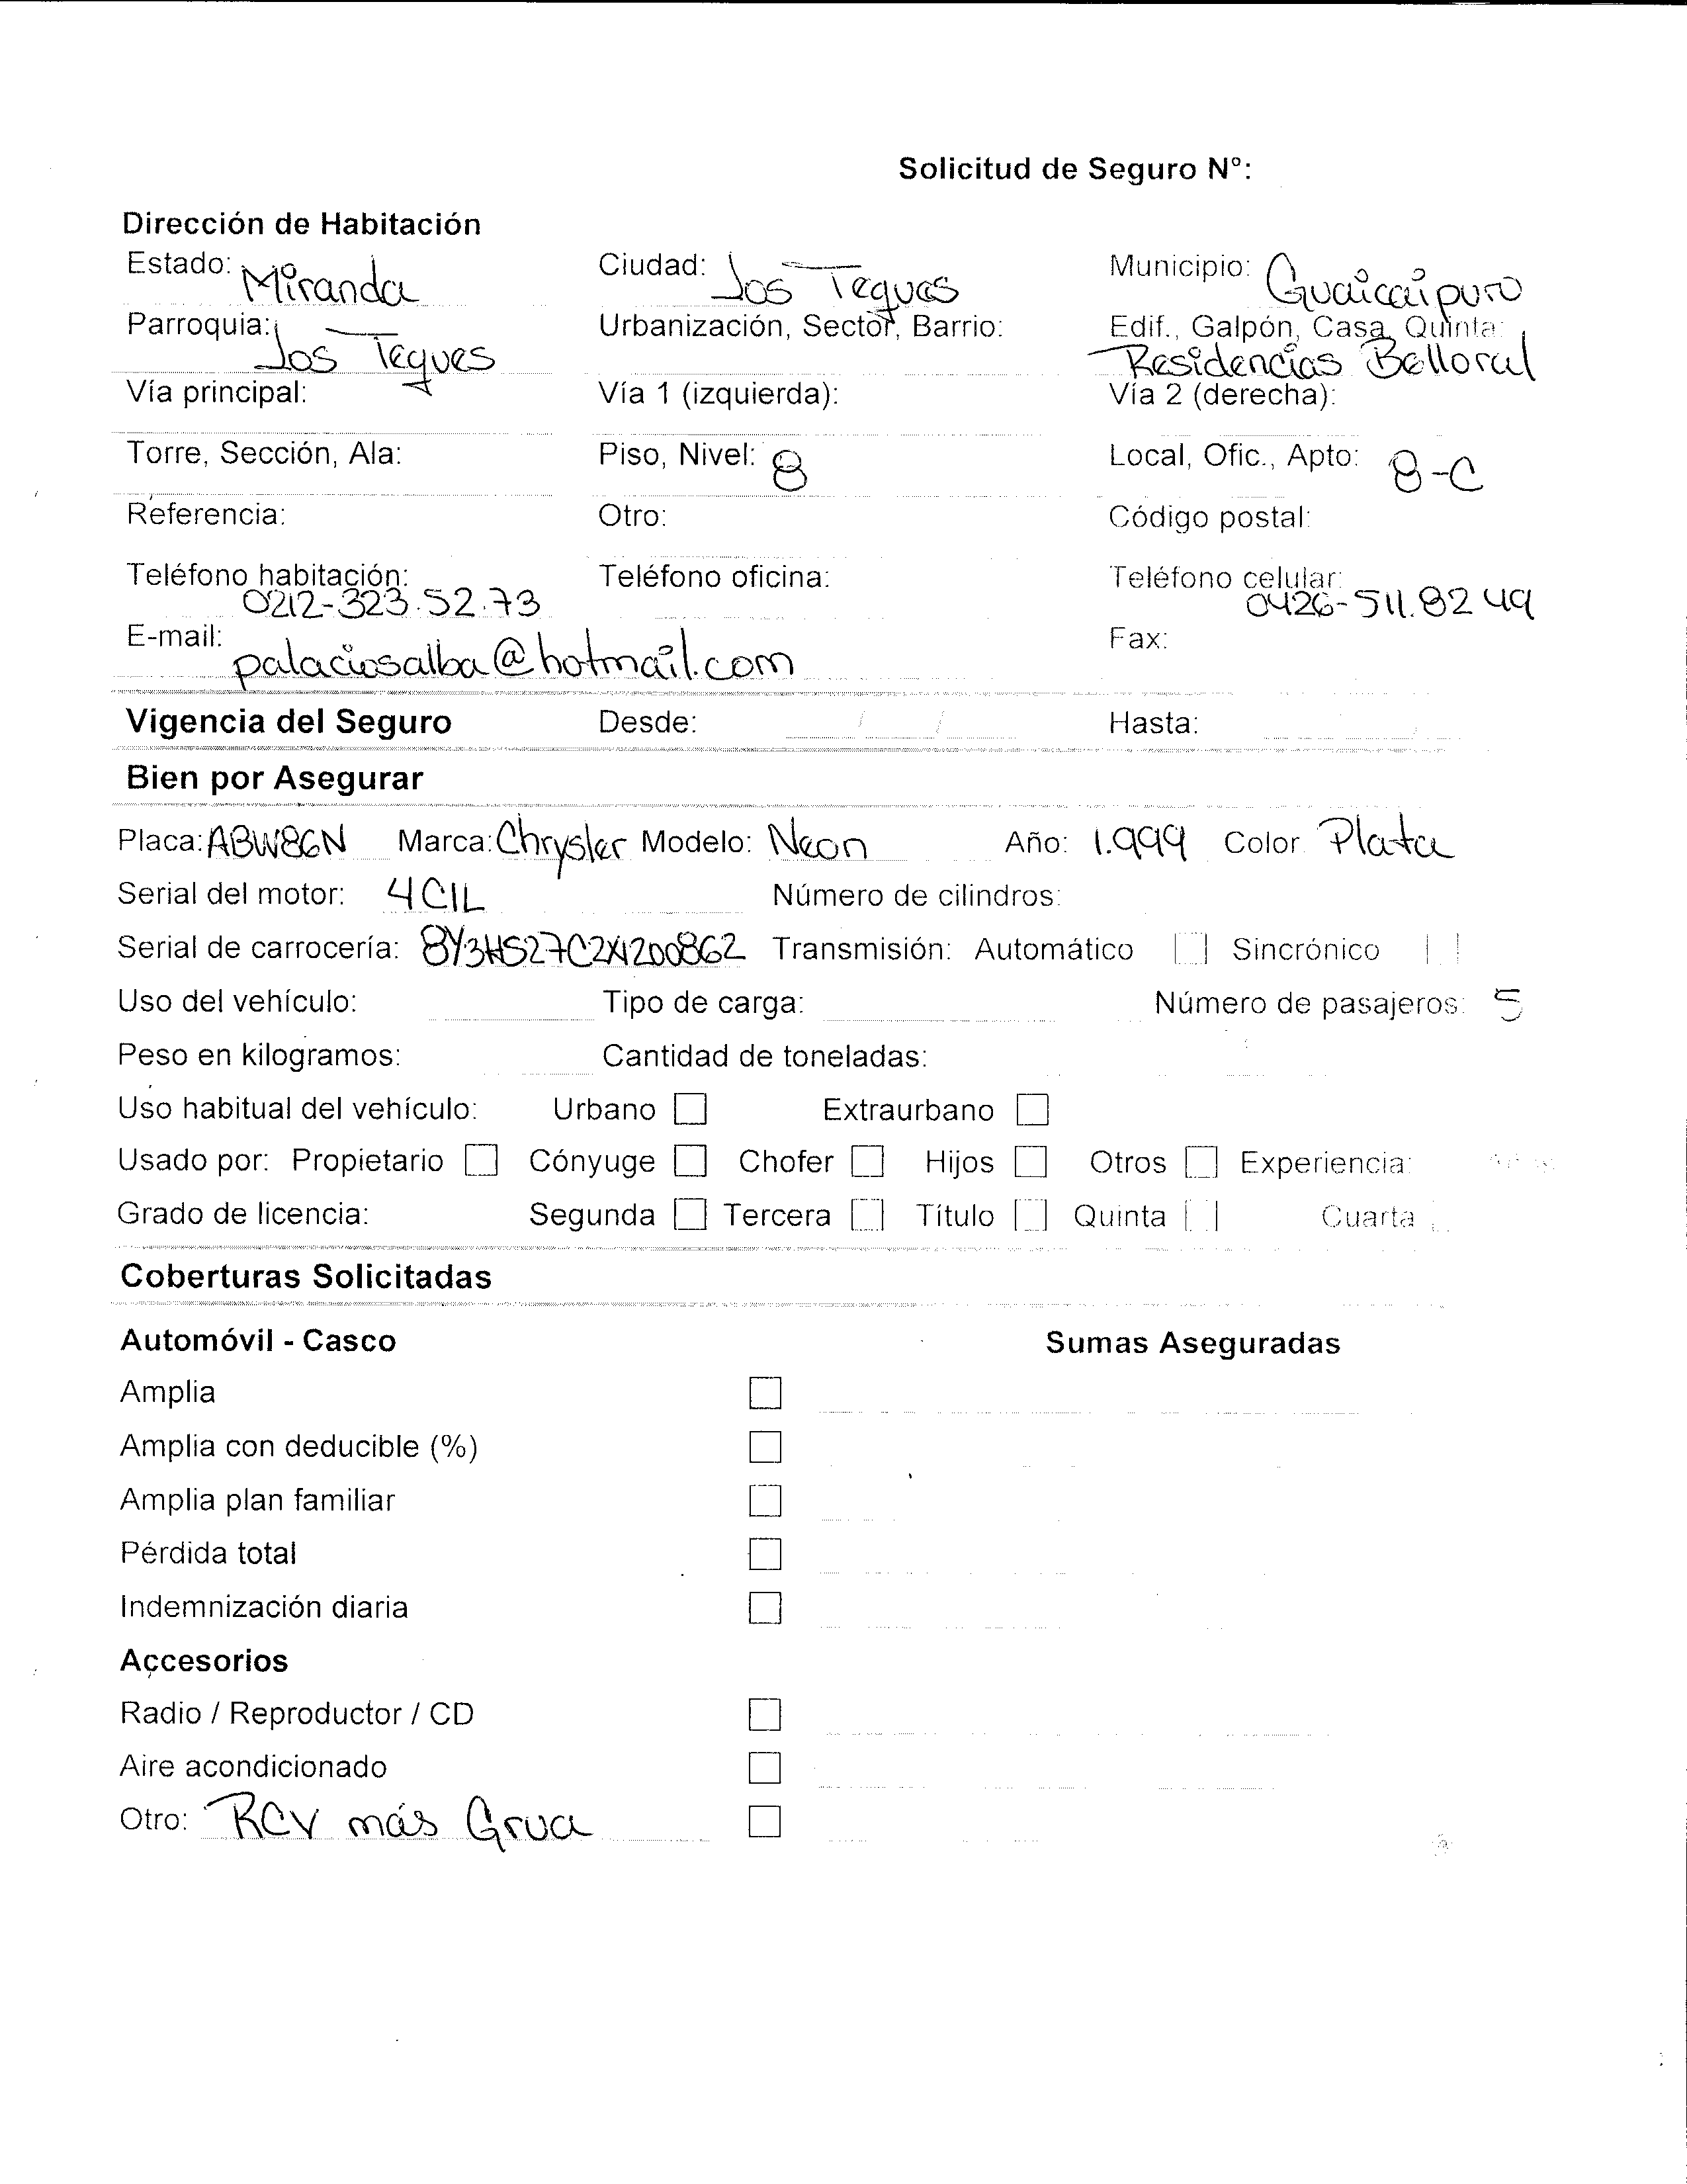 Solicitud de Seguro N°:
Dirección de Habitación
Estado: Miranda Ciudad: Los Teques Municipio: Guaicaipuro
Parroquia: Los Teques Urbanización, Sector, Barrio: Edif., Galpón, Casa, Quinta: Residencias Belloral
Vía principal: Vía 1 (izquierda): Vía 2 (derecha):
Torre, Sección, Ala: Piso, Nivel: 8 Local, Ofic., Apto: 8-C
Referencia: Otro: Código postal:
Teléfono habitación: 0212-323.52.73 Teléfono oficina: Teléfono celular: 0426-511.82 49
E-mail: palaciosalba@hotmail.com Fax:
Vigencia del Seguro Desde: / / Hasta:
Bien por Asegurar
Placa: ABW86N Marca: Chrysler Modelo: Neon Año: 1.999 Color Plata
Serial del motor: 4CIL Número de cilindros:
Serial de carrocería: 8Y3HS27C2X1200862 Transmisión: Automático Sincrónico
Uso del vehículo: Tipo de carga: Número de pasajeros: 5
Peso en kilogramos: Cantidad de toneladas:
Uso habitual del vehículo: Urbano Extraurbano
Usado por: Propietario Cónyuge Chofer Hijos Otros Experiencia:
Grado de licencia: Segunda Tercera Título Quinta Cuarta
Coberturas Solicitadas
Automóvil - Casco Sumas Aseguradas
Amplia
Amplia con deducible (%)
Amplia plan familiar
Pérdida total
Indemnización diaria
Accesorios
Radio / Reproductor / CD
Aire acondicionado
Otro: RCV más Grua